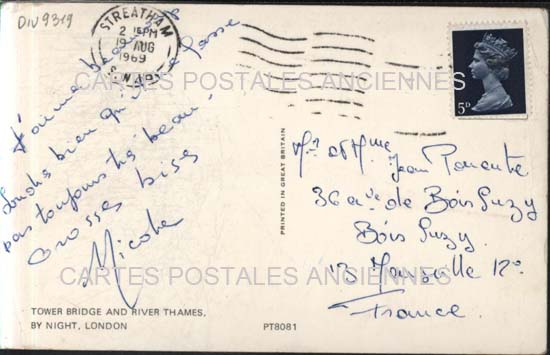 DIV9319
STREATHAM
2 15PM
19 AUG
1969
S.W.16
5D
J'aime beaucoup
Londres bien qu'il ne fasse
pas toujours très beau.
Grosses bises
Nicole
PRINTED IN GREAT BRITAIN
Mr et Mme Jean
36 av. de Bois Luzy
Bois Luzy
13 Marseille 12e
France.
CARTES POSTALES ANCIENNES
CARTES POSTALES ANCIENNES
TOWER BRIDGE AND RIVER THAMES,
BY NIGHT, LONDON
PT8081